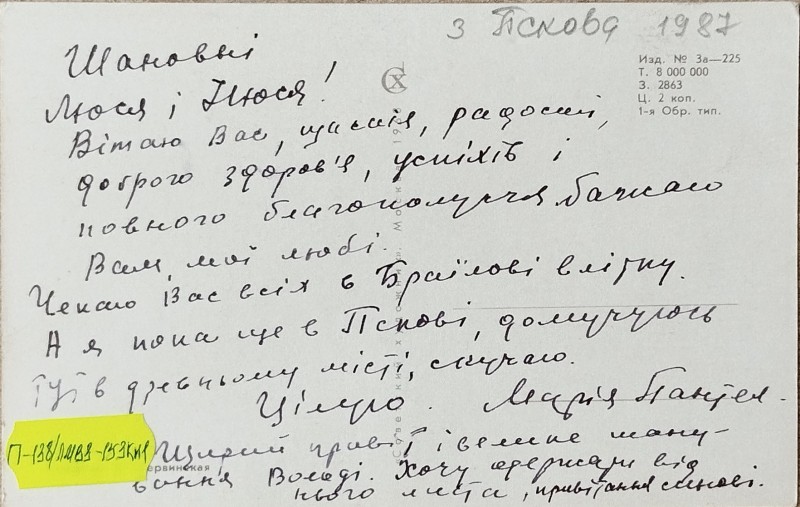 З Пскова 1987
Изд. № 3а—225
Т. 8 000 000
З. 2863
Ц. 2 коп.
1-я Обр. тип.
Шановні
Люся і Нюся!
Вітаю Вас, щастя, радості,
доброго здоров'я, успіхів і
повного благополуччя бажаю
Вам, мої любі.
Чекаю Вас всіх в Браїлові влітку.
А я поки ще в Пскові, домучуюсь
тут в древньому місті, скучаю.
Цілую. Марія Пантел.
Щирий привіт і велике шану-
вання Володі. Хочу одержати від
нього листа, привітання синові.
П-138/ЛМВВ-153
«Советский художник». Москва